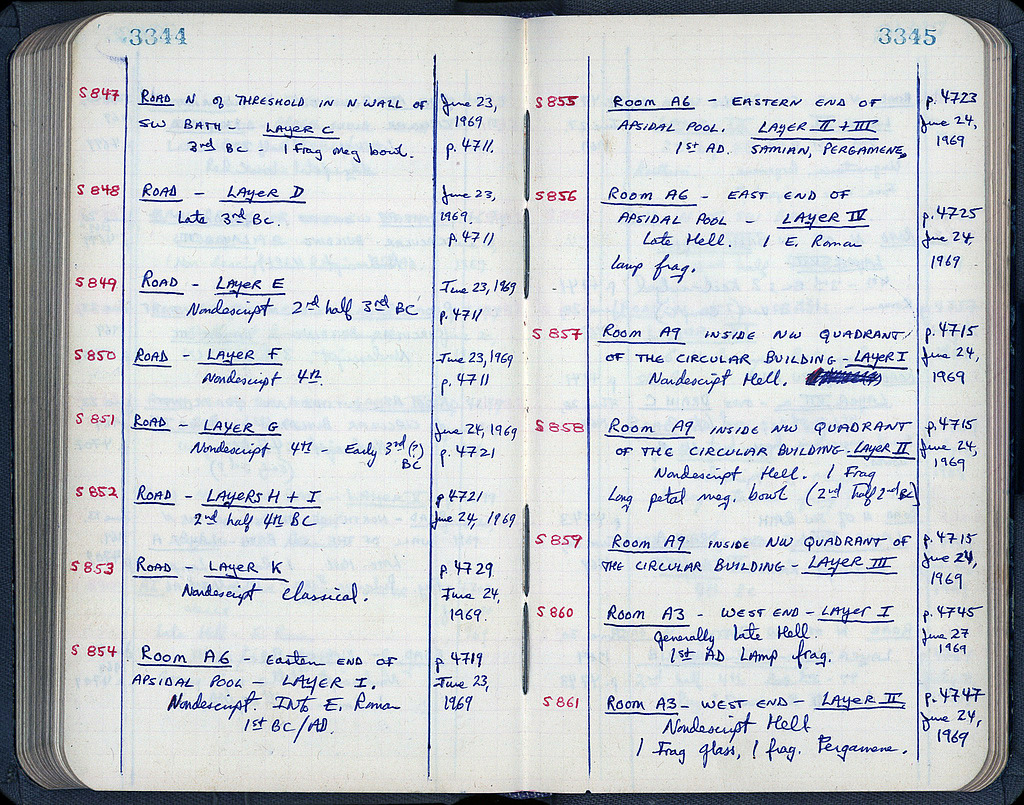 3344
S847 ROAD N of THRESHOLD IN N WALL OF June 23,
SW BATH - LAYER C 1969
3rd BC 1 Frag meg bowl. p. 4711.
S848 ROAD - LAYER D June 23,
Late 3rd BC. 1969.
p. 4711
S849 ROAD - LAYER E June 23, 1969
Nondescript 2nd half 3rd BC p. 4711
S850 ROAD - LAYER F June 23, 1969
Nondescript 4th. p. 4711
S851 ROAD - LAYER G June 24, 1969
Nondescript 4th - Early 3rd (?) p. 4721
BC
S852 ROAD - LAYERS H + I p 4721
2nd half 4th BC June 24, 1969
S853 ROAD - LAYER K p. 4729
Nondescript Classical. June 24,
1969.
S854 ROOM A6 - Eastern END OF p 4719
APSIDAL POOL - LAYER I. June 23,
Nondescript. INto E. Roman 1969
1st BC/AD.
3345
S855 ROOM A6 - EASTERN END OF p. 4723
APSIDAL POOL. LAYER II + III June 24,
1st AD. SAMIAN, PERGAMENE, 1969
S856 ROOM A6 - EAST END OF
APSIDAL POOL - LAYER IV p. 4725
Late Hell. 1 E. Roman June 24,
lamp frag. 1969
S857 ROOM A9 INSIDE NW QUADRANT p. 4715
OF THE CIRCULAR BUILDING - LAYER I June 24,
Nondescript Hell. 1969
S858 ROOM A9 INSIDE NW QUADRANT p. 4715
OF THE CIRCULAR BUILDING - LAYER II June 24,
Nondescript Hell. 1 Frag 1969
Long petal meg. bowl (2nd half 2nd BC)
S859 ROOM A9 INSIDE NW QUADRANT OF p. 4715
THE CIRCULAR BUILDING - LAYER III June 24,
1969
S860 ROOM A3 - WEST END - LAYER I p. 4745
generally late Hell June 27
1st AD LAMP frag. 1969
S861 ROOM A3 - WEST END - LAYER II p. 4747
Nondescript Hell June 24,
1 Frag glass, 1 frag. Pergamene. 1969